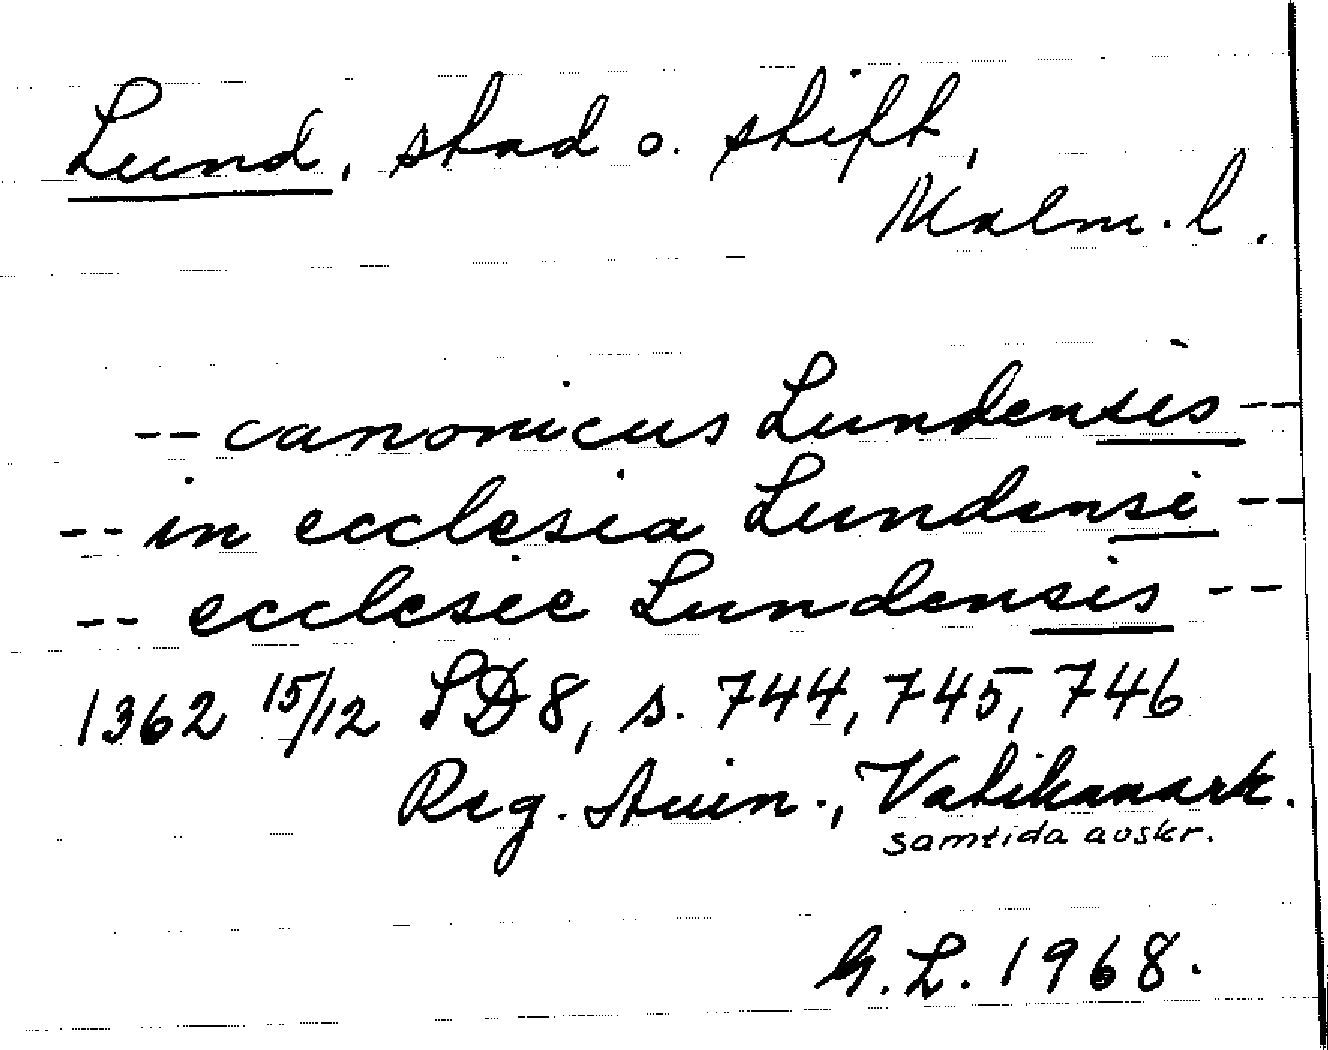 Lund, stad o. stift,
Malm. l.
-- canonicus Lundensis --
-- in ecclesia Lundensi --
-- ecclesie Lundensis --
1362 15/12 SD 8, s. 744, 745, 746
Reg. Avin., Vatikanark.
samtida avskr.
G. L. 1968.